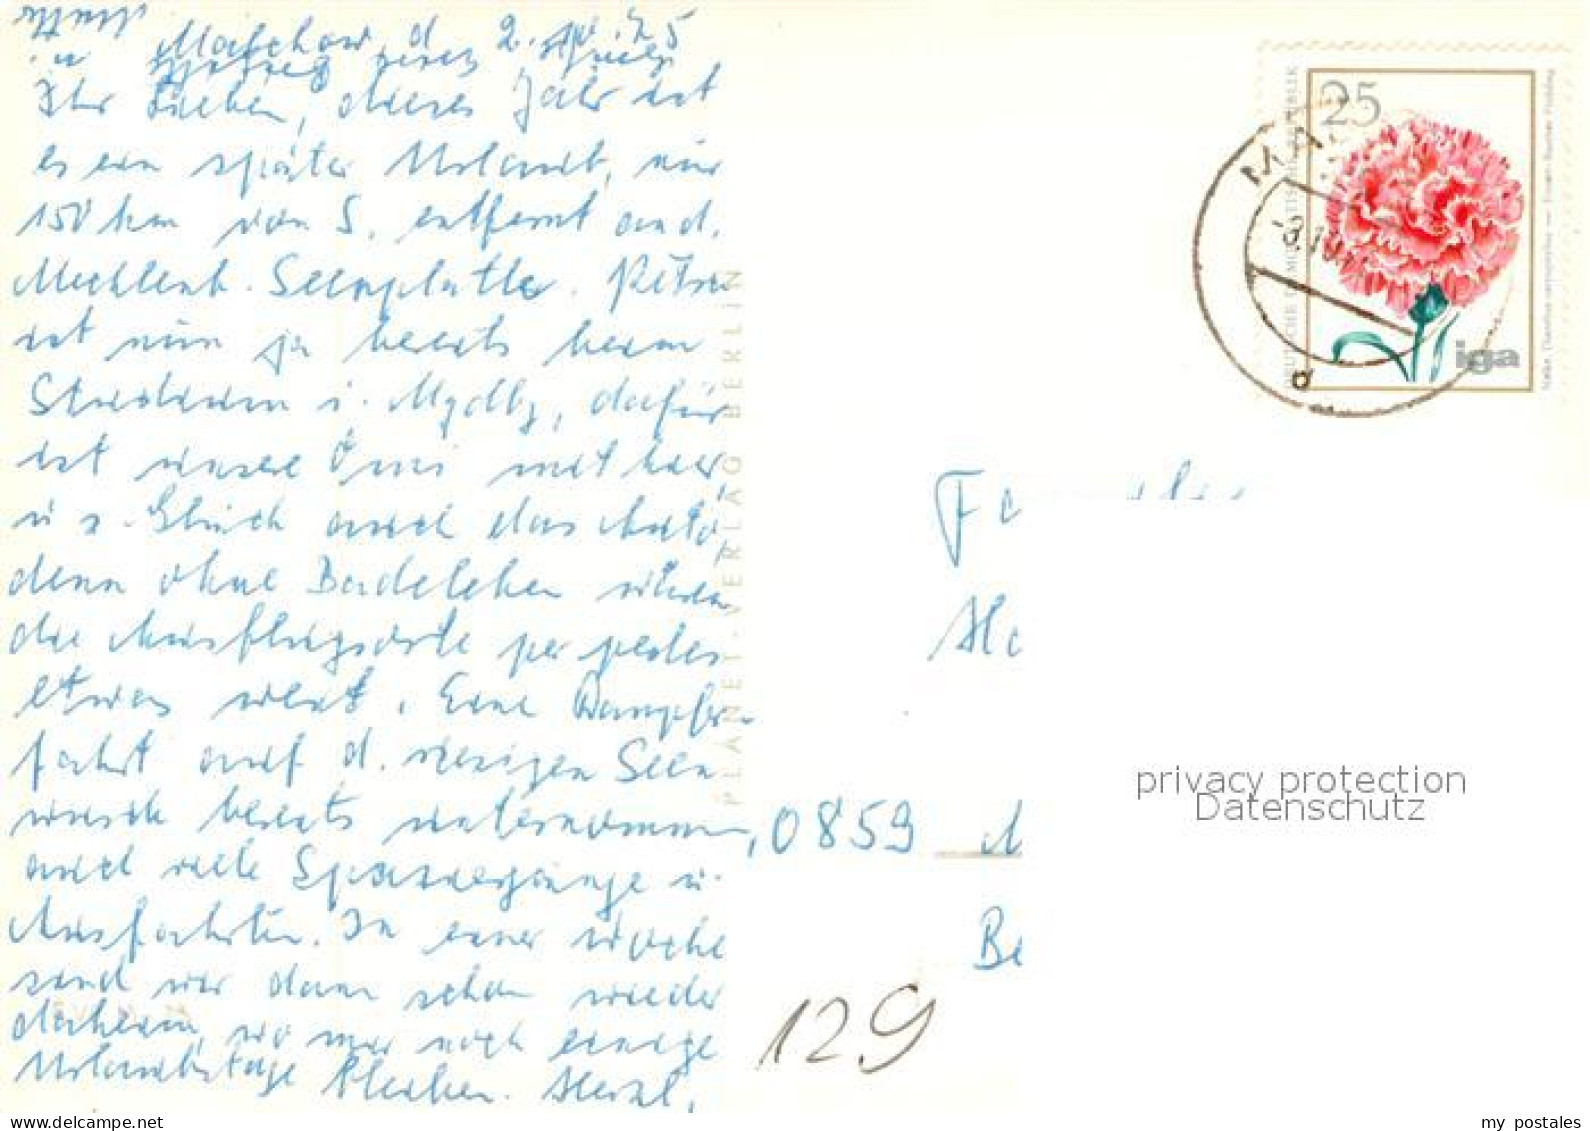 Malchow, d. 2. 10. 75
Ihr Lieben, dieses Jahr ist
es ein später Urlaub, nur
150 km von S. entfernt an d.
Mecklenb. Seenplatte. Petra
ist nun ja bereits beim
Studium i. Mgdbg, dafür
ist unsere Omi mit hier,
u. z. Glück auch das Auto,
denn ohne Badeleben wären
die Ausflugsorte per pedes
etwas weit. Eine Dampfer-
fahrt auf d. riesigen Seen
wurde bereits unternommen,
auch viele Spaziergänge u.
Ausfahrten. In einer Woche
sind wir dann schon wieder
daheim, wo mir noch einige
Urlaubstage bleiben. Herzl.
PLANET-VERLAG BERLIN
DEUTSCHE DEMOKRATISCHE REPUBLIK
25
iga
d
0859
Be
129
privacy protection
Datenschutz
www.delcampe.net
my_postales